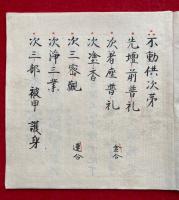 不動供次第
先壇前普礼
次着座普礼
金合
次塗香
次三密觀
蓮合
次淨三業
次三部 被甲 護身